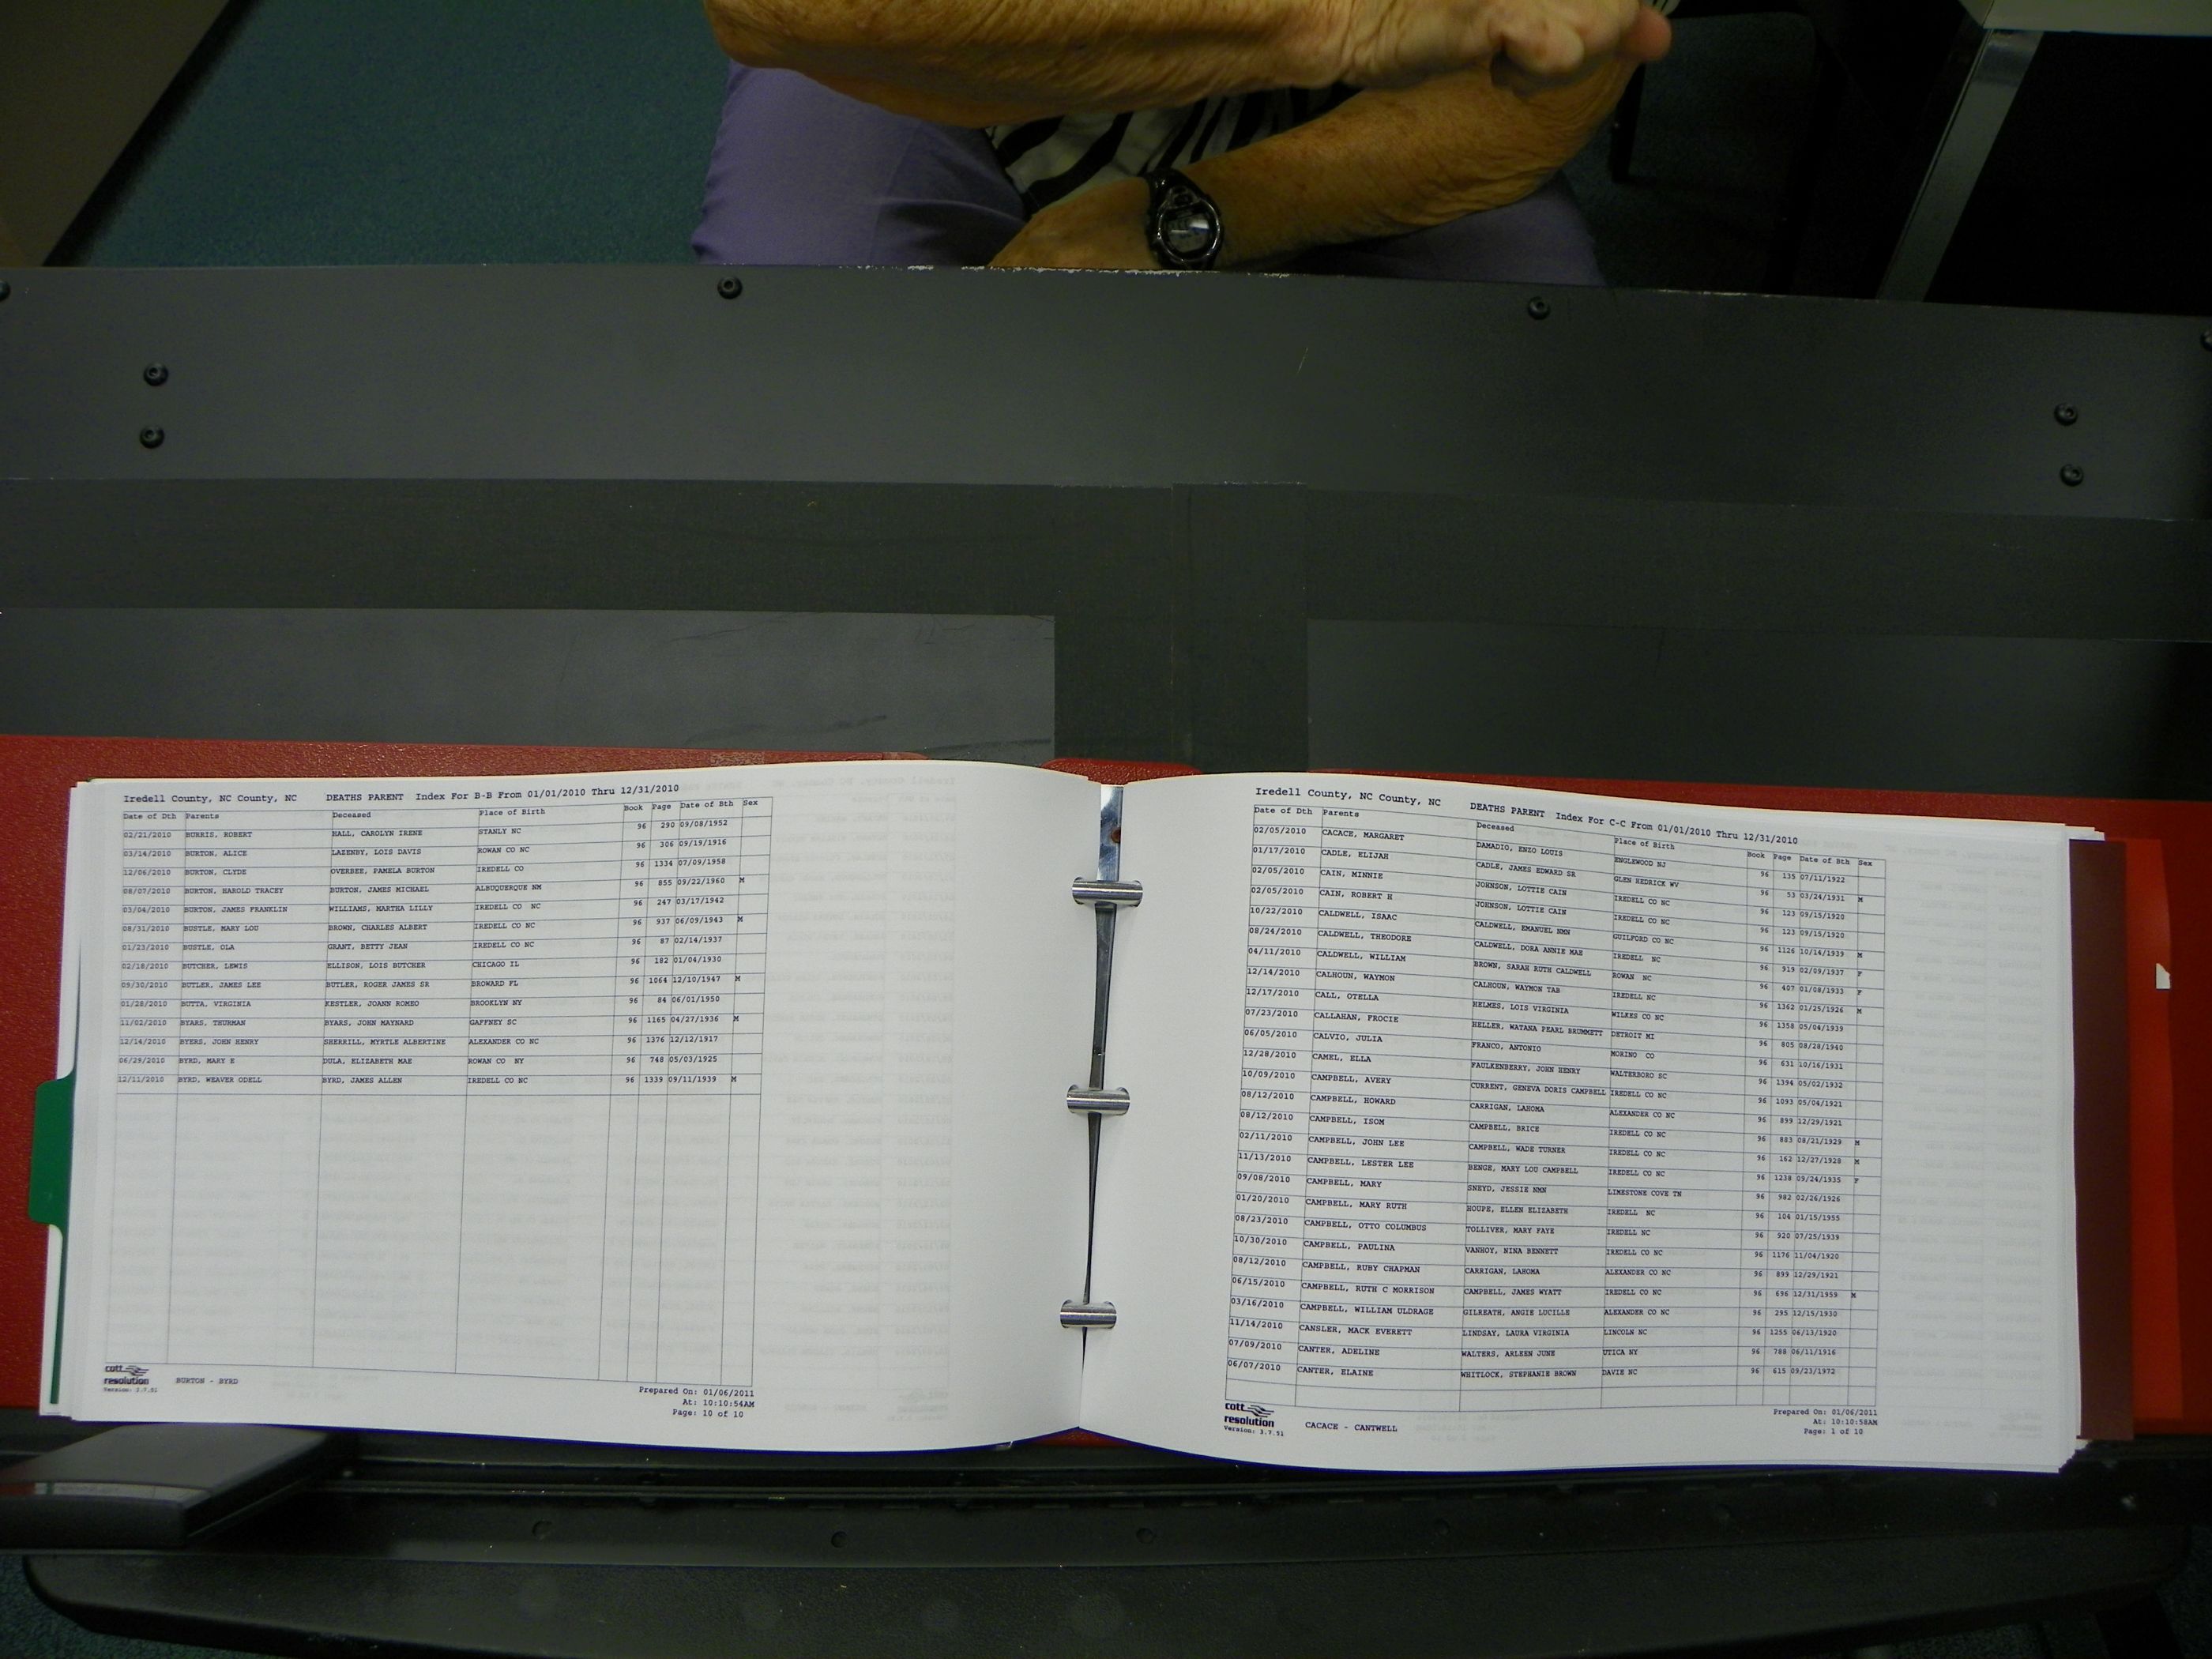 Iredell County, NC County, NC DEATHS PARENT Index For B-B From 01/01/2010 Thru 12/31/2010
Date of Dth Parents Deceased Place of Birth Book Page Date of Bth Sex
02/21/2010 BURRIS, ROBERT HALL, CAROLYN IRENE STANLY NC 96 290 09/08/1952
03/14/2010 BURTON, ALICE LAZENBY, LOIS DAVIS ROWAN CO NC 96 306 09/19/1916
12/06/2010 BURTON, CLYDE OVERBEE, PAMELA BURTON IREDELL CO 96 1334 07/09/1958
08/07/2010 BURTON, HAROLD TRACEY BURTON, JAMES MICHAEL ALBUQUERQUE NM 96 855 09/22/1960 M
03/04/2010 BURTON, JAMES FRANKLIN WILLIAMS, MARTHA LILLY IREDELL CO NC 96 247 03/17/1942
08/31/2010 BUSTLE, MARY LOU BROWN, CHARLES ALBERT IREDELL CO NC 96 937 06/09/1943 M
01/23/2010 BUSTLE, OLA GRANT, BETTY JEAN IREDELL CO NC 96 87 02/14/1937
02/18/2010 BUTCHER, LEWIS ELLISON, LOIS BUTCHER CHICAGO IL 96 182 01/04/1930
09/30/2010 BUTLER, JAMES LEE BUTLER, ROGER JAMES SR BROWARD FL 96 1064 12/10/1947 M
01/28/2010 BUTTA, VIRGINIA KESTLER, JOANN ROMEO BROOKLYN NY 96 84 06/01/1950
11/02/2010 BYARS, THURMAN BYARS, JOHN MAYNARD GAFFNEY SC 96 1165 04/27/1936 M
12/14/2010 BYERS, JOHN HENRY SHERRILL, MYRTLE ALBERTINE ALEXANDER CO NC 96 1376 12/12/1917
06/29/2010 BYRD, MARY E DULA, ELIZABETH MAE ROWAN CO NY 96 748 05/03/1925
12/11/2010 BYRD, WEAVER ODELL BYRD, JAMES ALLEN IREDELL CO NC 96 1339 09/11/1939 M
cott
resolution
Version: 3.7.51
BURTON - BYRD
Prepared On: 01/06/2011
At: 10:10:54AM
Page: 10 of 10
Iredell County, NC County, NC DEATHS PARENT Index For C-C From 01/01/2010 Thru 12/31/2010
Date of Dth Parents Deceased Place of Birth Book Page Date of Bth Sex
02/05/2010 CACACE, MARGARET DAMADIO, ENZO LOUIS ENGLEWOOD NJ 96 135 07/11/1922
01/17/2010 CADLE, ELIJAH CADLE, JAMES EDWARD SR GLEN HEDRICK WV 96 53 03/24/1931 M
02/05/2010 CAIN, MINNIE JOHNSON, LOTTIE CAIN IREDELL CO NC 96 123 09/15/1920
02/05/2010 CAIN, ROBERT H JOHNSON, LOTTIE CAIN IREDELL CO NC 96 123 09/15/1920
10/22/2010 CALDWELL, ISAAC CALDWELL, EMANUEL NMN GUILFORD CO NC 96 1126 10/14/1939 M
08/24/2010 CALDWELL, THEODORE CALDWELL, DORA ANNIE MAE IREDELL NC 96 919 02/09/1937 F
04/11/2010 CALDWELL, WILLIAM BROWN, SARAH RUTH CALDWELL ROWAN NC 96 407 01/08/1933 F
12/14/2010 CALHOUN, WAYMON CALHOUN, WAYMON TAB IREDELL NC 96 1362 01/25/1926 M
12/17/2010 CALL, OTELLA HELMES, LOIS VIRGINIA WILKES CO NC 96 1358 05/04/1939
07/23/2010 CALLAHAN, FROCIE HELLER, WATANA PEARL BRUMMETT DETROIT MI 96 805 08/28/1940
06/05/2010 CALVIO, JULIA FRANCO, ANTONIO MORINO CO 96 631 10/16/1931
12/28/2010 CAMEL, ELLA FAULKENBERRY, JOHN HENRY WALTERBORO SC 96 1394 05/02/1932
10/09/2010 CAMPBELL, AVERY CURRENT, GENEVA DORIS CAMPBELL IREDELL CO NC 96 1093 05/04/1921
08/12/2010 CAMPBELL, HOWARD CARRIGAN, LAHOMA ALEXANDER CO NC 96 899 12/29/1921
08/12/2010 CAMPBELL, ISOM CAMPBELL, BRICE IREDELL CO NC 96 883 08/21/1929 M
02/11/2010 CAMPBELL, JOHN LEE CAMPBELL, WADE TURNER IREDELL CO NC 96 162 12/27/1928 M
11/13/2010 CAMPBELL, LESTER LEE BENGE, MARY LOU CAMPBELL IREDELL CO NC 96 1238 09/24/1935 F
09/08/2010 CAMPBELL, MARY SNEYD, JESSIE NMN LIMESTONE COVE TN 96 982 02/26/1926
01/20/2010 CAMPBELL, MARY RUTH HOUPE, ELLEN ELIZABETH IREDELL NC 96 104 01/15/1955
08/23/2010 CAMPBELL, OTTO COLUMBUS TOLLIVER, MARY FAYE IREDELL NC 96 920 07/25/1939
10/30/2010 CAMPBELL, PAULINA VANHOY, NINA BENNETT IREDELL CO NC 96 1176 11/04/1920
08/12/2010 CAMPBELL, RUBY CHAPMAN CARRIGAN, LAHOMA ALEXANDER CO NC 96 899 12/29/1921
06/15/2010 CAMPBELL, RUTH C MORRISON CAMPBELL, JAMES WYATT IREDELL CO NC 96 696 12/31/1959 M
03/16/2010 CAMPBELL, WILLIAM ULDRAGE GILREATH, ANGIE LUCILLE ALEXANDER CO NC 96 295 12/15/1930
11/14/2010 CANSLER, MACK EVERETT LINDSAY, LAURA VIRGINIA LINCOLN NC 96 1255 06/13/1920
07/09/2010 CANTER, ADELINE WALTERS, ARLEEN JUNE UTICA NY 96 788 06/11/1916
06/07/2010 CANTER, ELAINE WHITLOCK, STEPHANIE BROWN DAVIE NC 96 615 09/23/1972
cott
resolution
Version: 3.7.51
CACACE - CANTWELL
Prepared On: 01/06/2011
At: 10:10:58AM
Page: 1 of 10